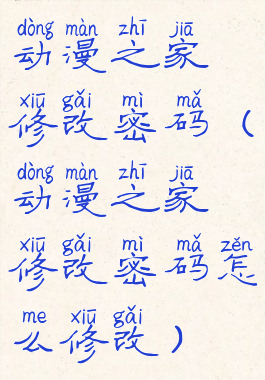 dòng màn zhī jiā
动漫之家
xiū gǎi mì mǎ
修改密码（
dòng màn zhī jiā
动漫之家
xiū gǎi mì mǎ zěn
修改密码怎
me xiū gǎi
么修改）